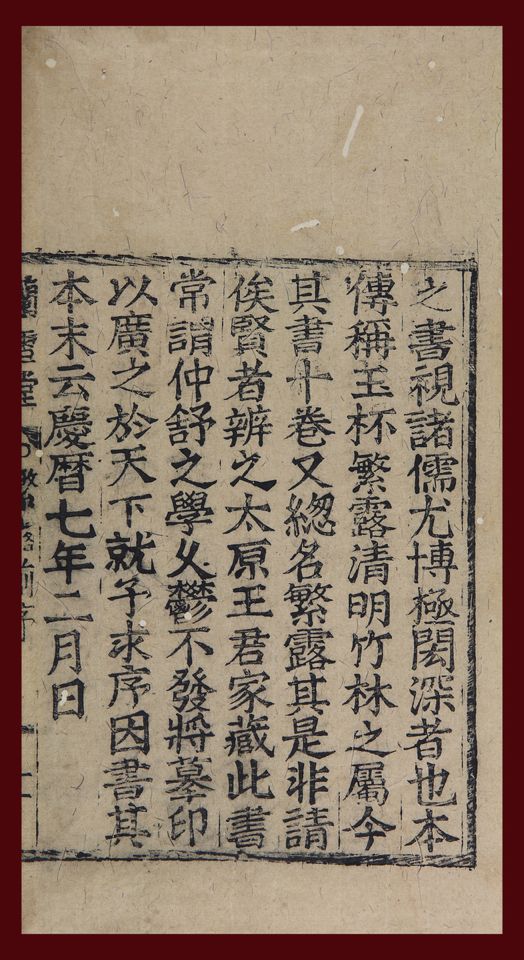 之書視諸儒尤博極閎深者也本
傳稱玉杯繁露清明竹林之屬今
其書十卷又緫名繁露其是非請
俟賢者辨之太原王君家藏此書
常謂仲舒之學久鬱不發將摹印
以廣之於天下就予求序因書其
本末云慶曆七年二月日
蘭雪堂